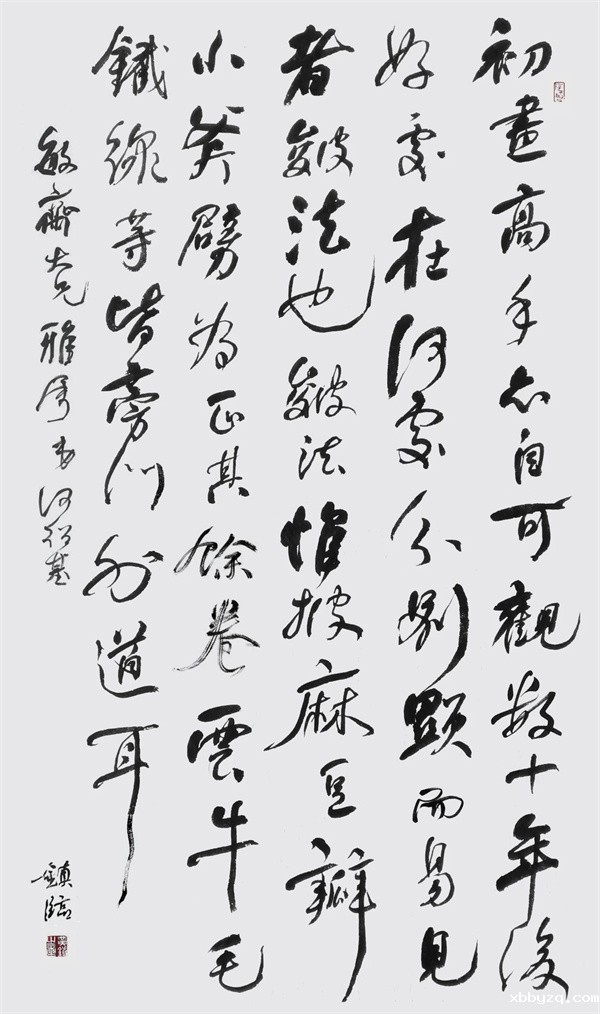 初畫高手亦自可觀數十年後
好處在何處分別顯而易見
者皴法也皴法惟披麻豆瓣
小斧劈為正其餘卷雲牛毛
鐵線等皆旁門外道耳
敏齋大兄雅屬 弟何紹基
鎮臨
xbbyzq.com